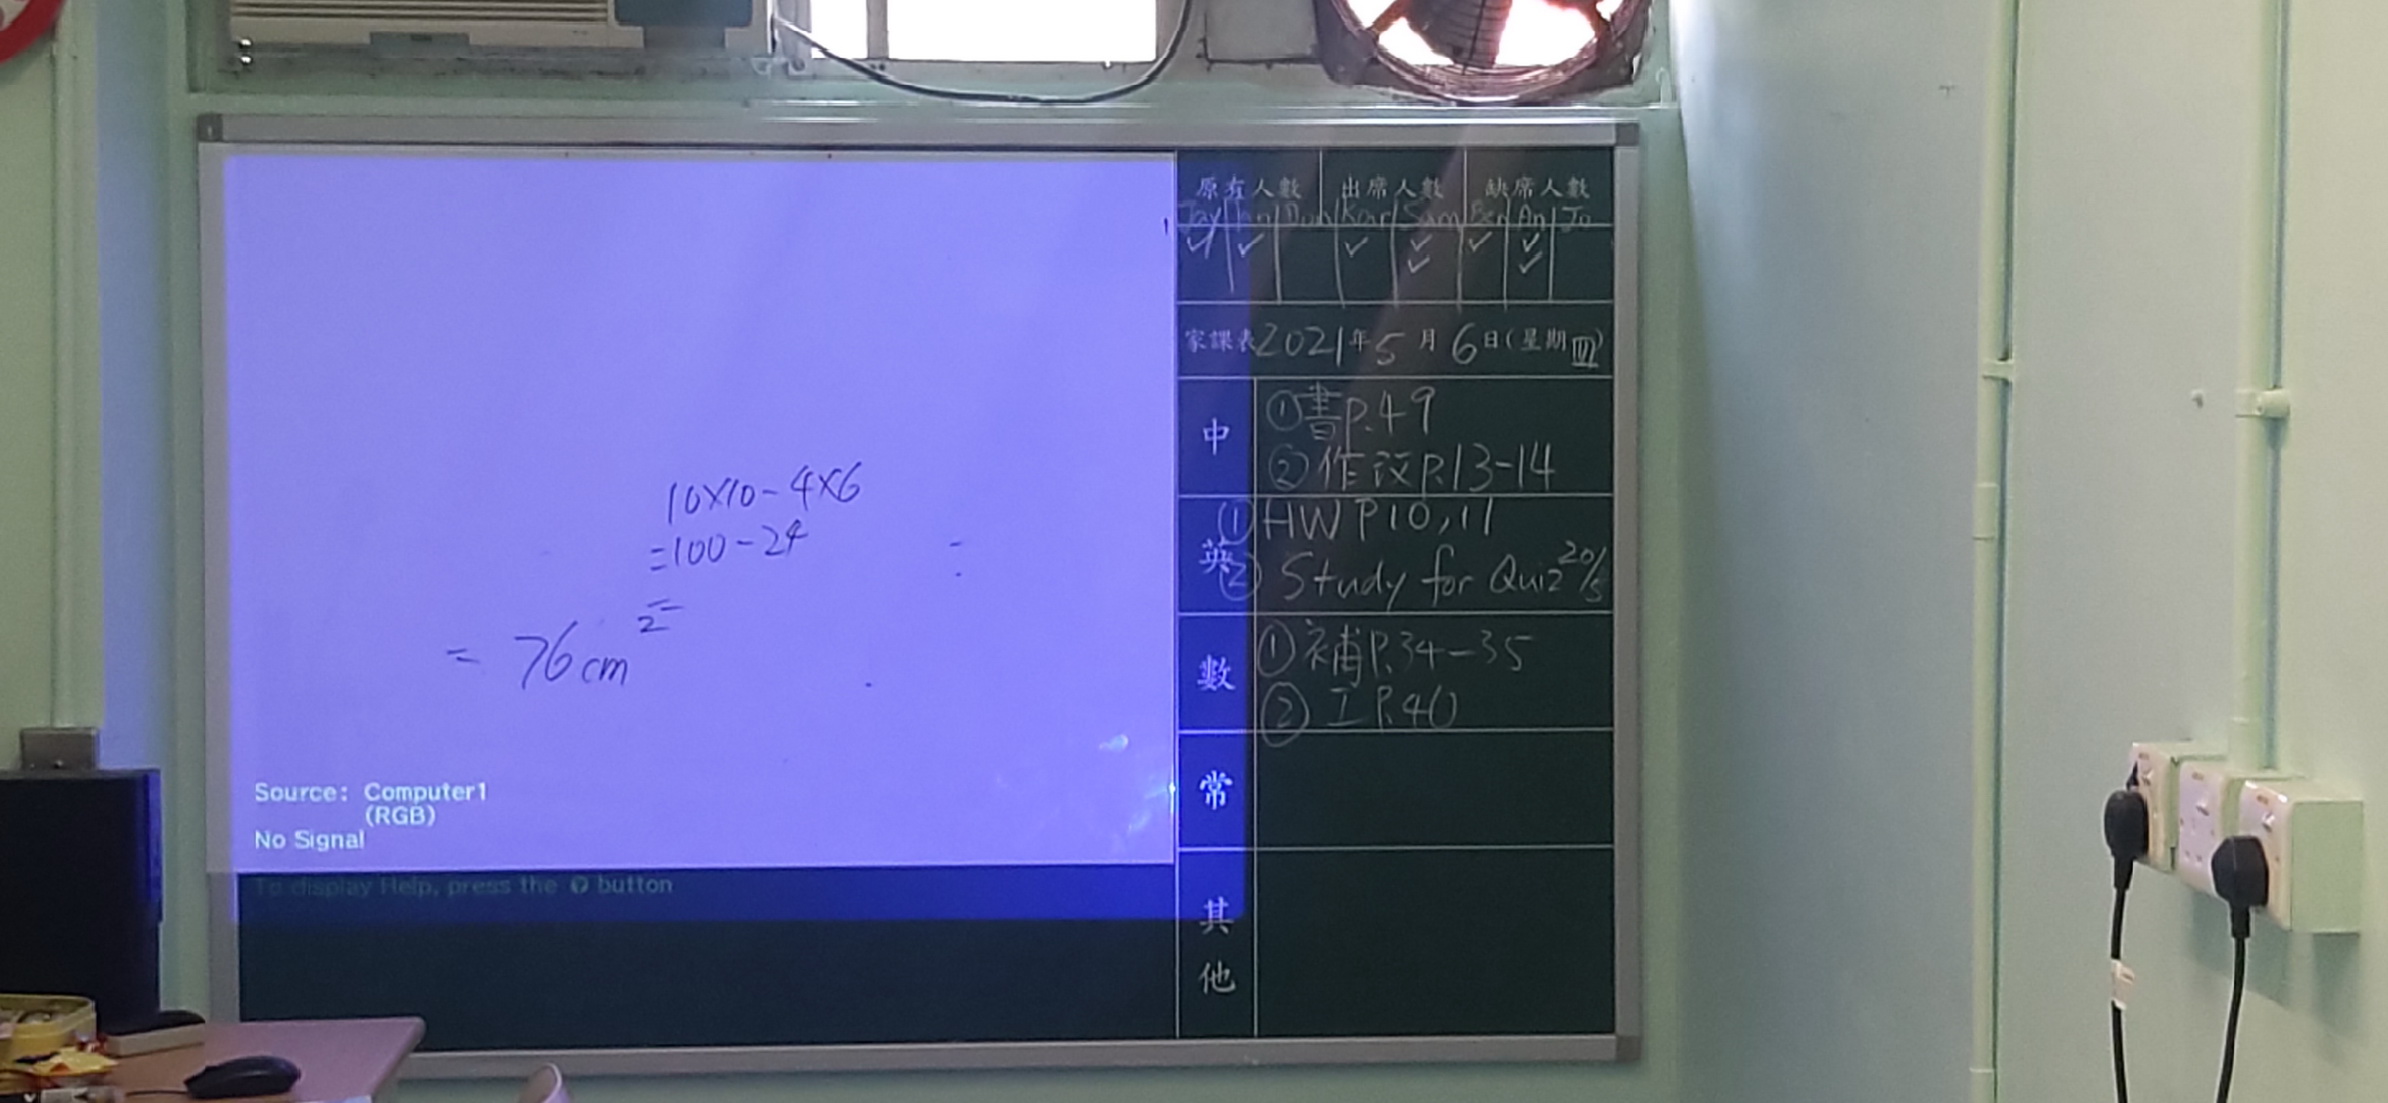 10×10-4×6
=100-24
=
= 76cm²
Source: Computer1
(RGB)
No Signal
To display Help, press the button
原有人數 出席人數 缺席人數
Jay Ian Don Kar Sam Ben An Jo
家課表2021年5月6日(星期四)
中
①書P.49
②作文P.13-14
英
①HW P10,11
②Study for Quiz 20/5
數
①補P.34-35
②工P.40
常
其
他